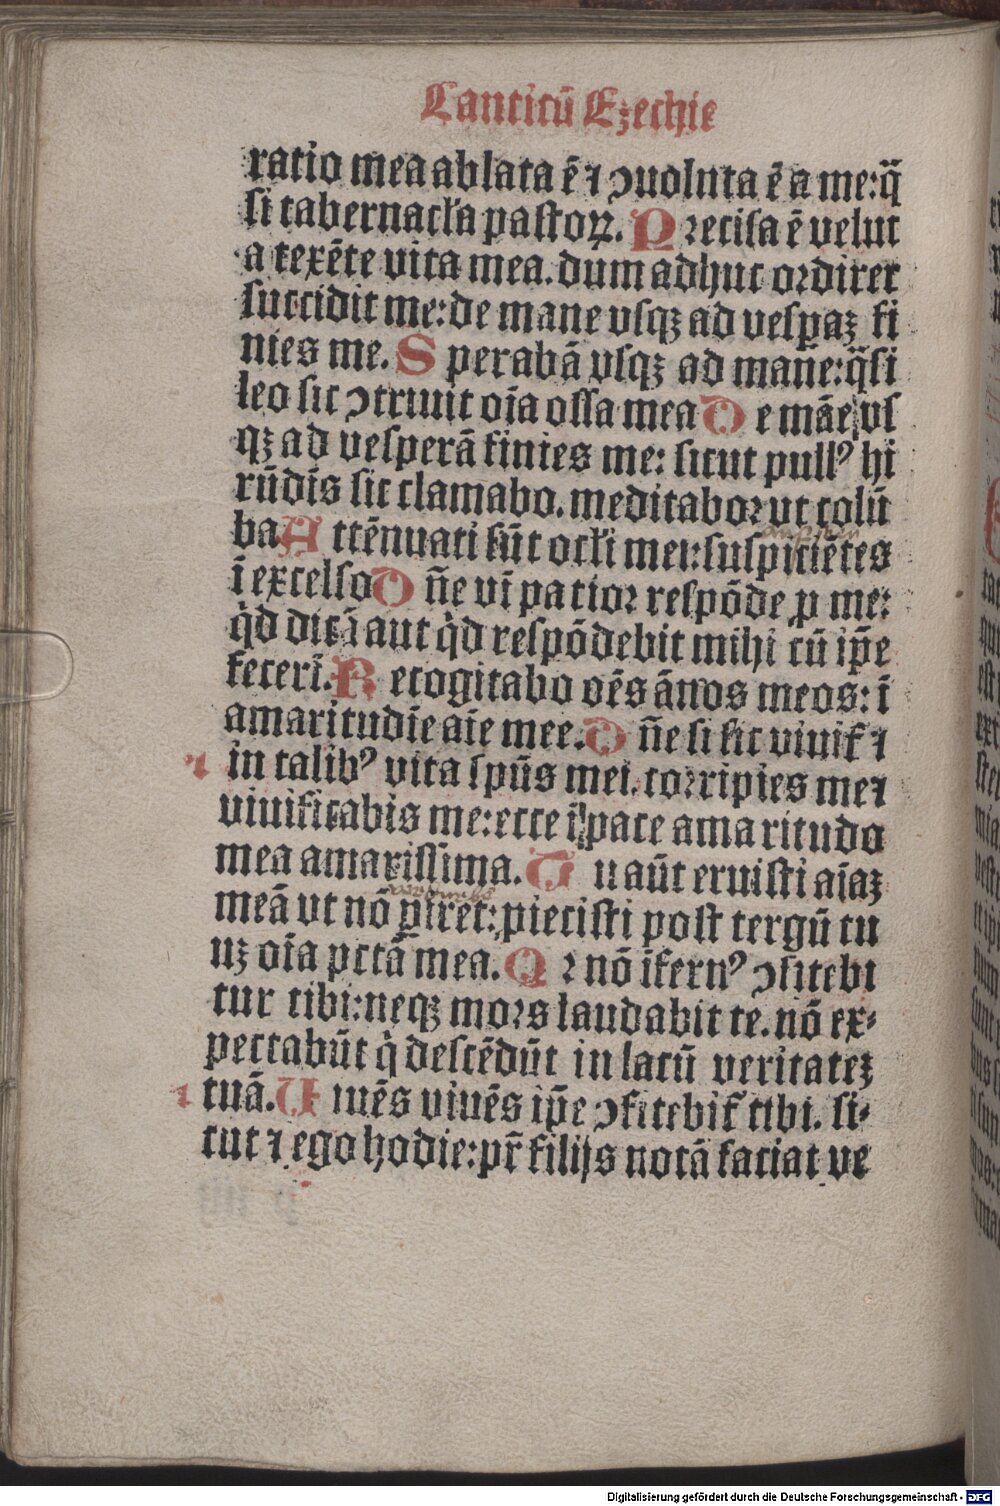 Canticū Ezechie
ratio mea ablata ē ⁊ ꝯuoluta ē a me: q̄
si tabernacł'a pastoꝝ. Precisa ē velut
a texēte vita mea. dum adhuc ordirer
succidit me: de mane vsqꝫ ad vesꝑaꝫ fi
nies me. Sperabā vsqꝫ ad mane: q̄si
leo sic ꝯtriuit oīa ossa mea De māe vs
qꝫ ad vesperā finies me: sicut pullꝰ hi
rūdīs sic clamabo. meditabor vt colū
ba Attēnuati sūt ocł'i mei: suspiciētes
ī excelso Dn̄e vī patior respōde ꝓ me:
qͥd dicā aut qͥd respōdebit mihi cū ip̄e
fecerī. Recogitabo oēs ānos meos: ī
amaritudīe aīe mee. Dn̄e si sic viuit̄ ⁊
in talibꝰ vita sp̄us mei. corripies me ⁊
viuificabis me: ecce ī pace amaritudo
mea amarissima. Tu aūt eruisti aīaꝫ
meā vt nō ꝑiret: ꝓiecisti post tergū tu
uꝫ oīa pctā mea. Qr nō īfernꝰ ꝯfitebi
tur tibi: neqꝫ mors laudabit te. nō ex⸗
pectabūt qͥ descēdūt in lacū veritateꝫ
tuā. Uiuēs viuēs ip̄e ꝯfitebit̄ tibi. si⸗
cut ⁊ ego hodie: pr̄ filijs notā faciat ve
Digitalisierung gefördert durch die Deutsche Forschungsgemeinschaft - DFG